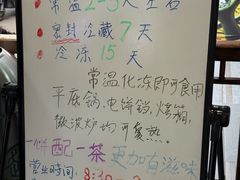 常温2-3天左右
密封冷藏7天
冷冻15天
常温化冻即可食用
平底锅,电饼铛,烤箱,
微波炉均可复热.
一饼配一茶 更加有滋味
营业时间: 8:30